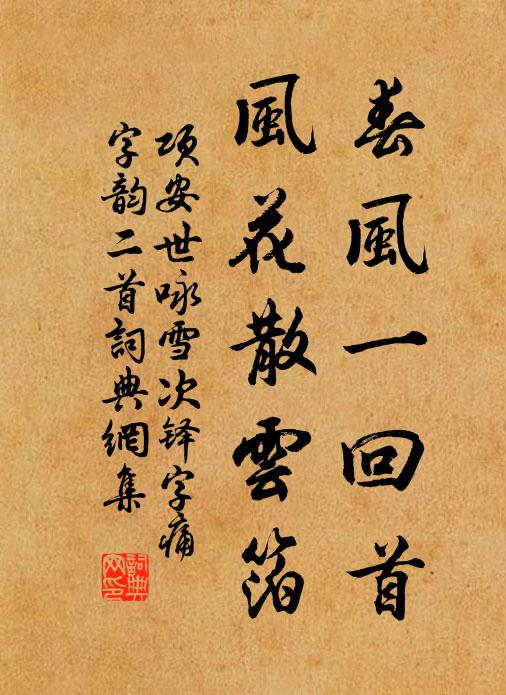 春風一回首
風花散雲箔
项安世咏雪次铎字痛
字韵二首詞典網集
詞典
网印